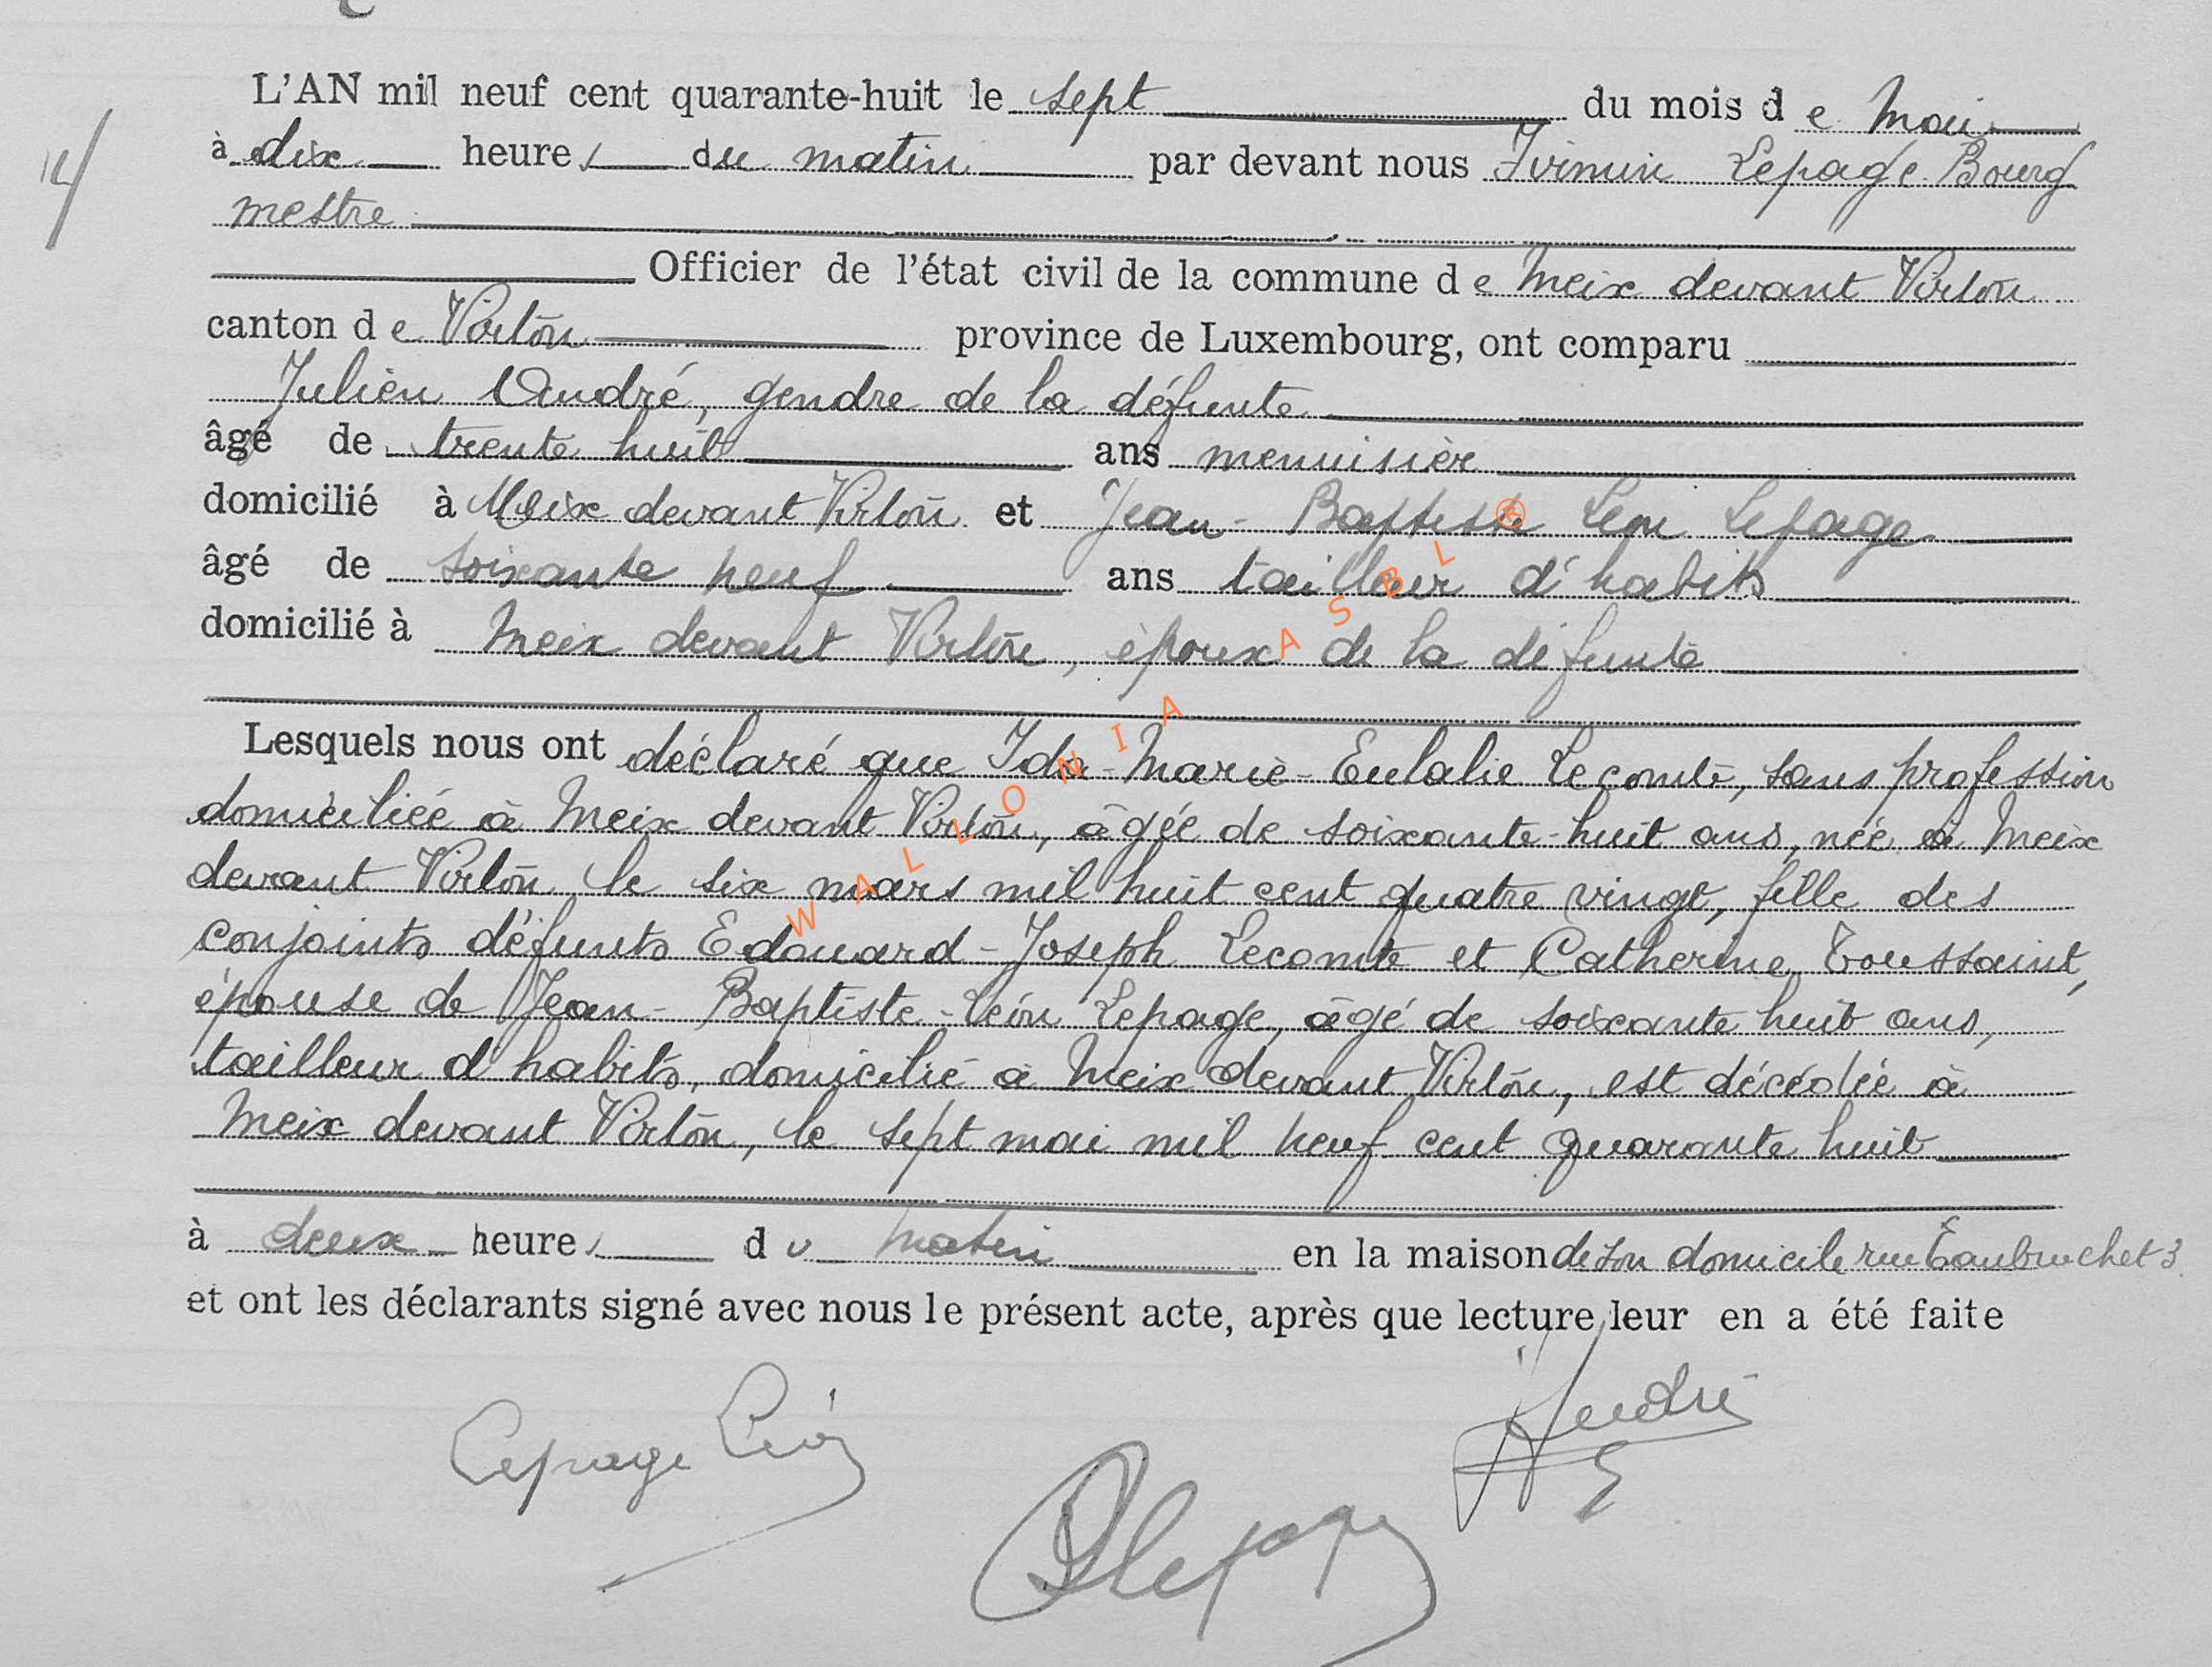 L'AN mil neuf cent quarante-huit le sept du mois de Mai
14
à dix heures du matin par devant nous Firmin Lepage Bourg
mestre
Officier de l'état civil de la commune de Meix devant Virton
canton de Virton province de Luxembourg, ont comparu
Julien André, gendre de la défunte
âgé de trente huit ans menuisièr
domicilié à Meix devant Virton et Jean-Baptiste Léon Lepage
âgé de soixante neuf ans tailleur d'habits
domicilié à Meix devant Virton, époux de la défunte
Lesquels nous ont déclaré que Ida-Marie-Eulalie Lecomte, sans profession
domiciliée à Meix devant Virton, âgée de soixante-huit ans, née à Meix
devant Virton le six mars mil huit cent quatre vingt, fille des
conjoints défunts Edouard-Joseph Lecomte et Catherine Toussaint,
épouse de Jean-Baptiste-Léon Lepage, âgé de soixante huit ans,
tailleur d'habits, domicilié à Meix devant Virton, est décédée à
Meix devant Virton, le sept mai mil neuf cent quarante huit
à deux heures du matin en la maison de son domicile rue 3
et ont les déclarants signé avec nous le présent acte, après que lecture leur en a été faite
Lepage Léon
André
Lepage
WALLONIA ASBL ®